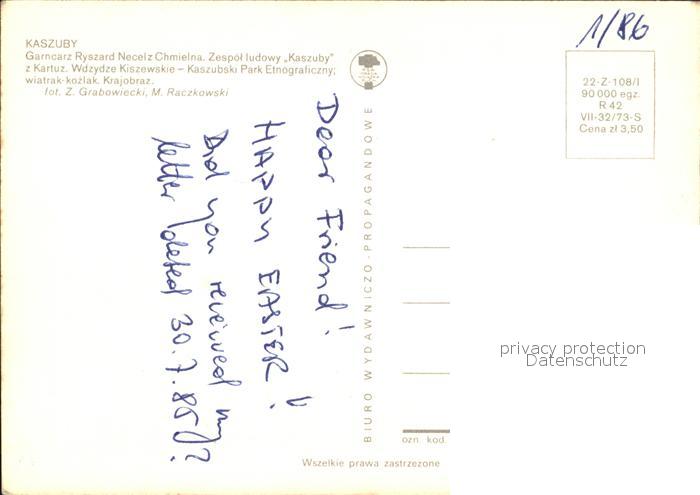 KASZUBY
Garncarz Ryszard Necel z Chmielna. Zespół ludowy „Kaszuby"
z Kartuz. Wdzydze Kiszewskie – Kaszubski Park Etnograficzny;
wiatrak-koźlak. Krajobraz.
fot. Z. Grabowiecki, M. Raczkowski
1/86
22-Z-108/I
90 000 egz.
R 42
VII-32/73-S
Cena zł 3,50
Dear Friend!
HAPPY EASTER!
Did you received my
letter (dated 30.7.85)?
BIURO WYDAWNICZO-PROPAGANDOWE
privacy protection
Datenschutz
ozn. kod.
Wszelkie prawa zastrzeżone